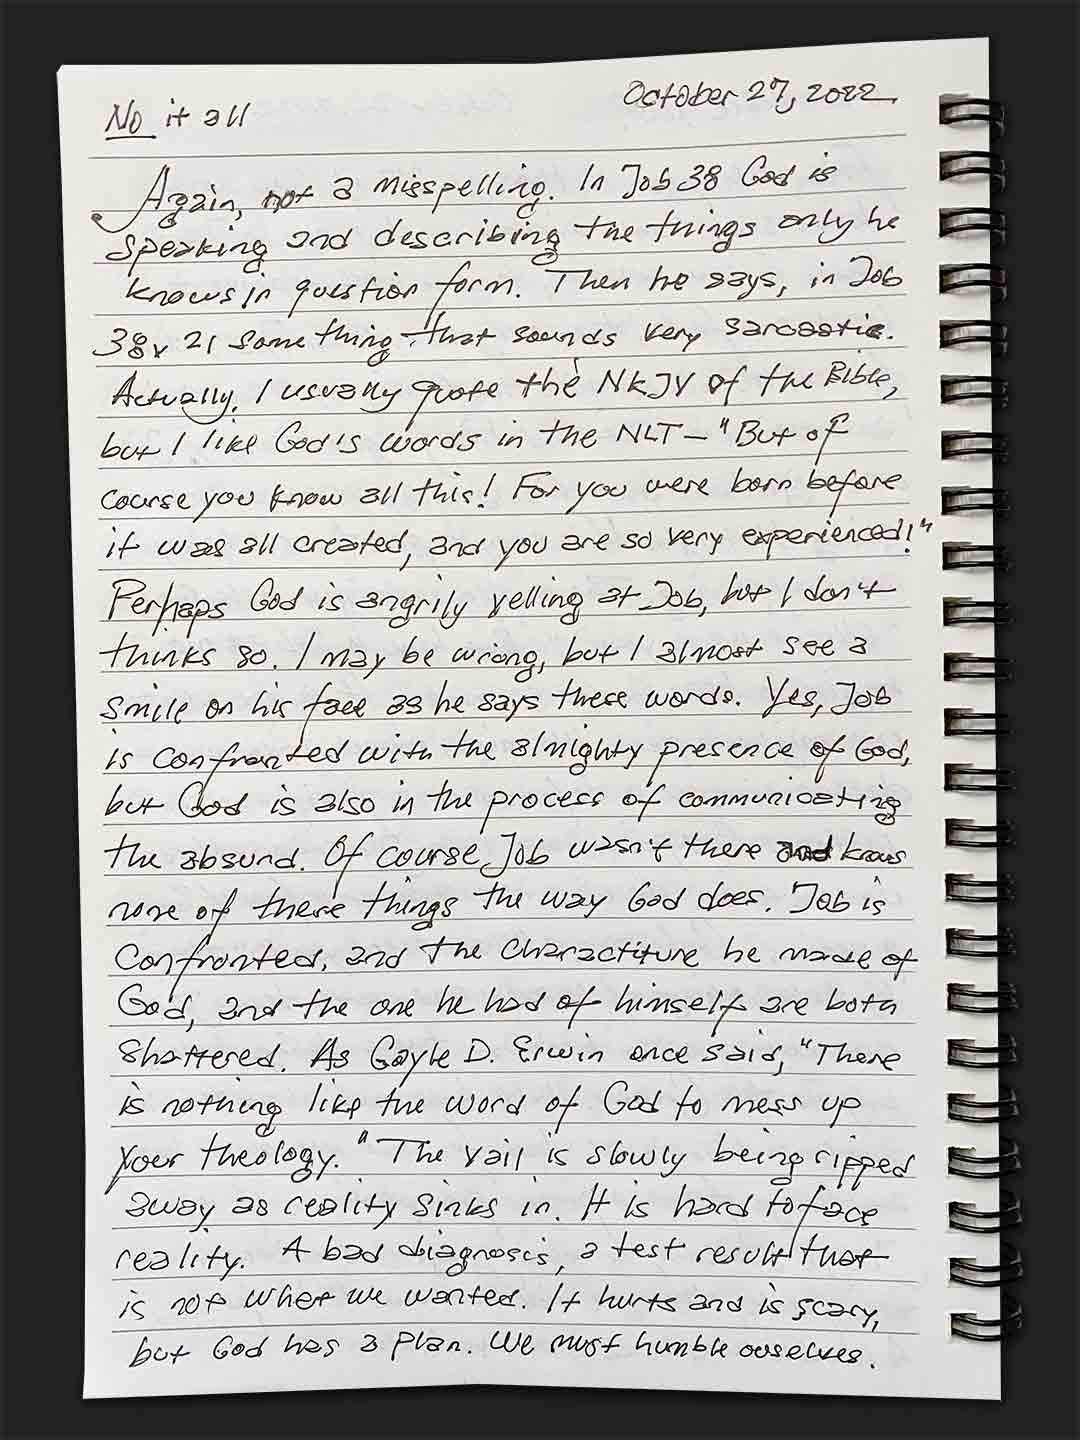 No it all
October 27, 2022
Again, not a misspelling. In Job 38 God is
speaking and describing the things only he
knows in question form. Then he says, in Job
38v 21 something that sounds very sarcastic.
Actually, I usually quote the NKJV of the Bible,
but I like God's words in the NLT - "But of
course you know all this! For you were born before
it was all created, and you are so very experienced!"
Perhaps God is angrily yelling at Job, but I don't
thinks so. I may be wrong, but I almost see a
smile on his face as he says these words. Yes, Job
is confronted with the almighty presence of God,
but God is also in the process of communicating
the absurd. Of course Job wasn't there and knows
none of these things the way God does. Job is
confronted, and the charactiture he made of
God, and the one he had of himself are both
shattered. As Gayle D. Erwin once said, "There
is nothing like the word of God to mess up
your theology." The vail is slowly being ripped
away as reality sinks in. It is hard to face
reality. A bad diagnosis, a test result that
is not what we wanted. It hurts and is scary,
but God has a plan. We must humble ourselves.